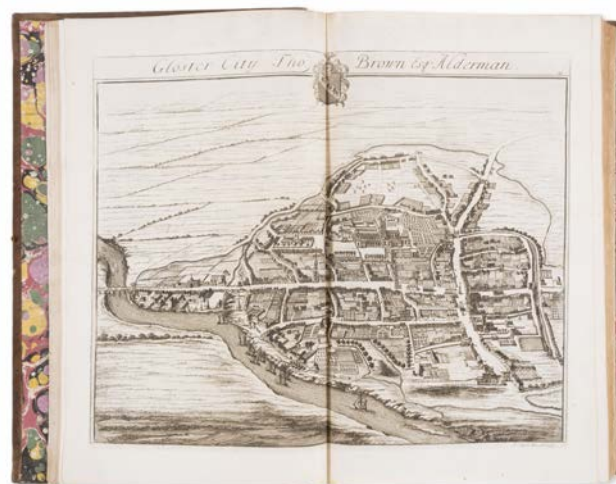 Gloster City Tho Brown Esqr Alderman